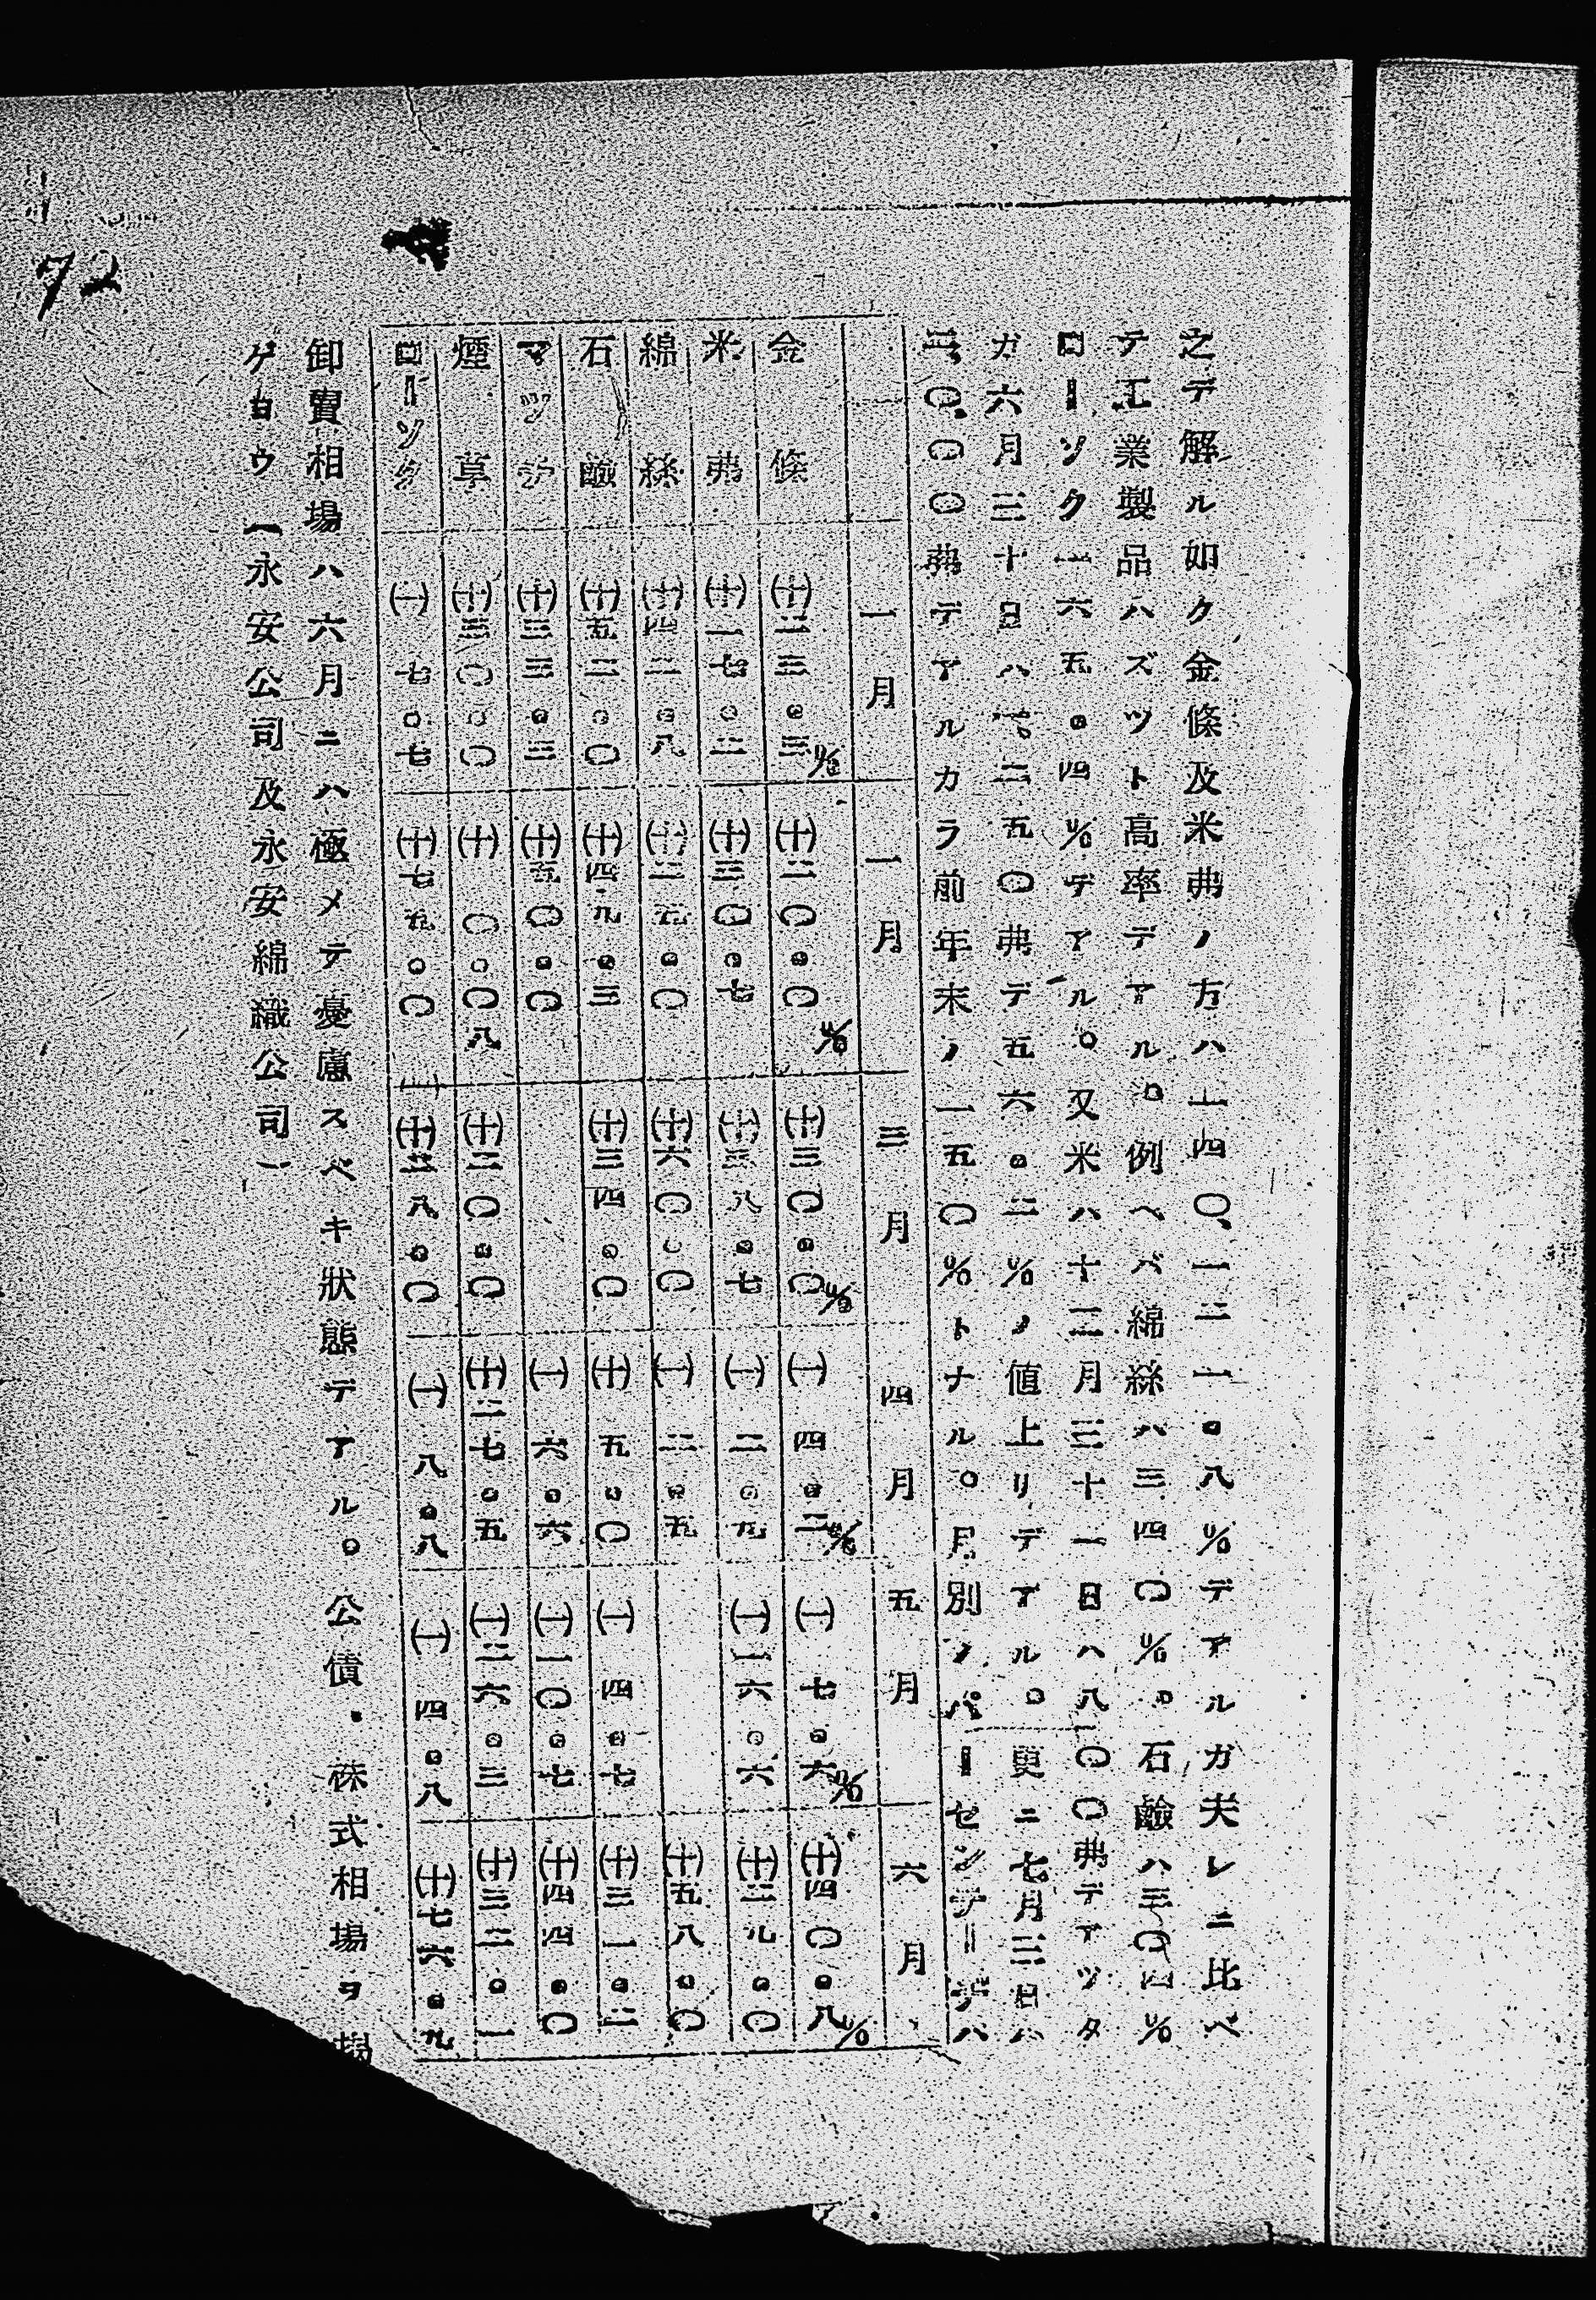 之デ解ル如ク金條及米弗ノ方ハ一四〇、一二一.八%デアルガ夫レニ比ベ
テ工業製品ハズツト高率デアル。例ヘバ綿絲ハ三四〇%。石鹼ハ三〇四%
ローソク一六五.四%デアル。又米ハ十二月三十一日ハ八〇〇弗デアツタ
ガ六月三十日ハ二五〇弗デ五六.二%ノ値上リデアル。更ニ七月三日ハ
三、〇〇〇弗デアルカラ前年末ノ一五〇%トナル。月別ノパーセンテージハ
一月 一月 三月 四月 五月 六月
金條 (十)二三.三% (十)二〇.〇% (十)三〇.〇% (一)四.二% (一)七.六% (十)四〇.八%
米弗 (十)一七.二 (十)三〇.七 (十)三八.七 (一)二.九 (一)一六.六 (十)二九.〇
綿絲 (十)四二.八 (十)二五.〇 (十)六〇.〇 (一)二.五 (十)五八.〇
石鹼 (十)五二.〇 (十)四九.三 (十)三四.〇 (十)五.〇 (一)四.七 (十)三一.二
マツチ (十)三三.三 (十)五〇.〇 (一)六.六 (一)一〇.七 (十)四四.〇
煙草 (十)三〇.〇 (十)〇.〇八 (十)二〇.〇 (十)二七.五 (一)二六.三 (十)三二.一
ローソク (一)七.七 (十)七五.〇 (十)八.〇 (一)八.八 (一)四.八 (十)七六.九
卸賣相場ハ六月ニハ極メテ憂慮スベキ狀態デアル。公債.株式相場ヲ揭
ゲヨウ(永安公司及永安綿織公司)
72